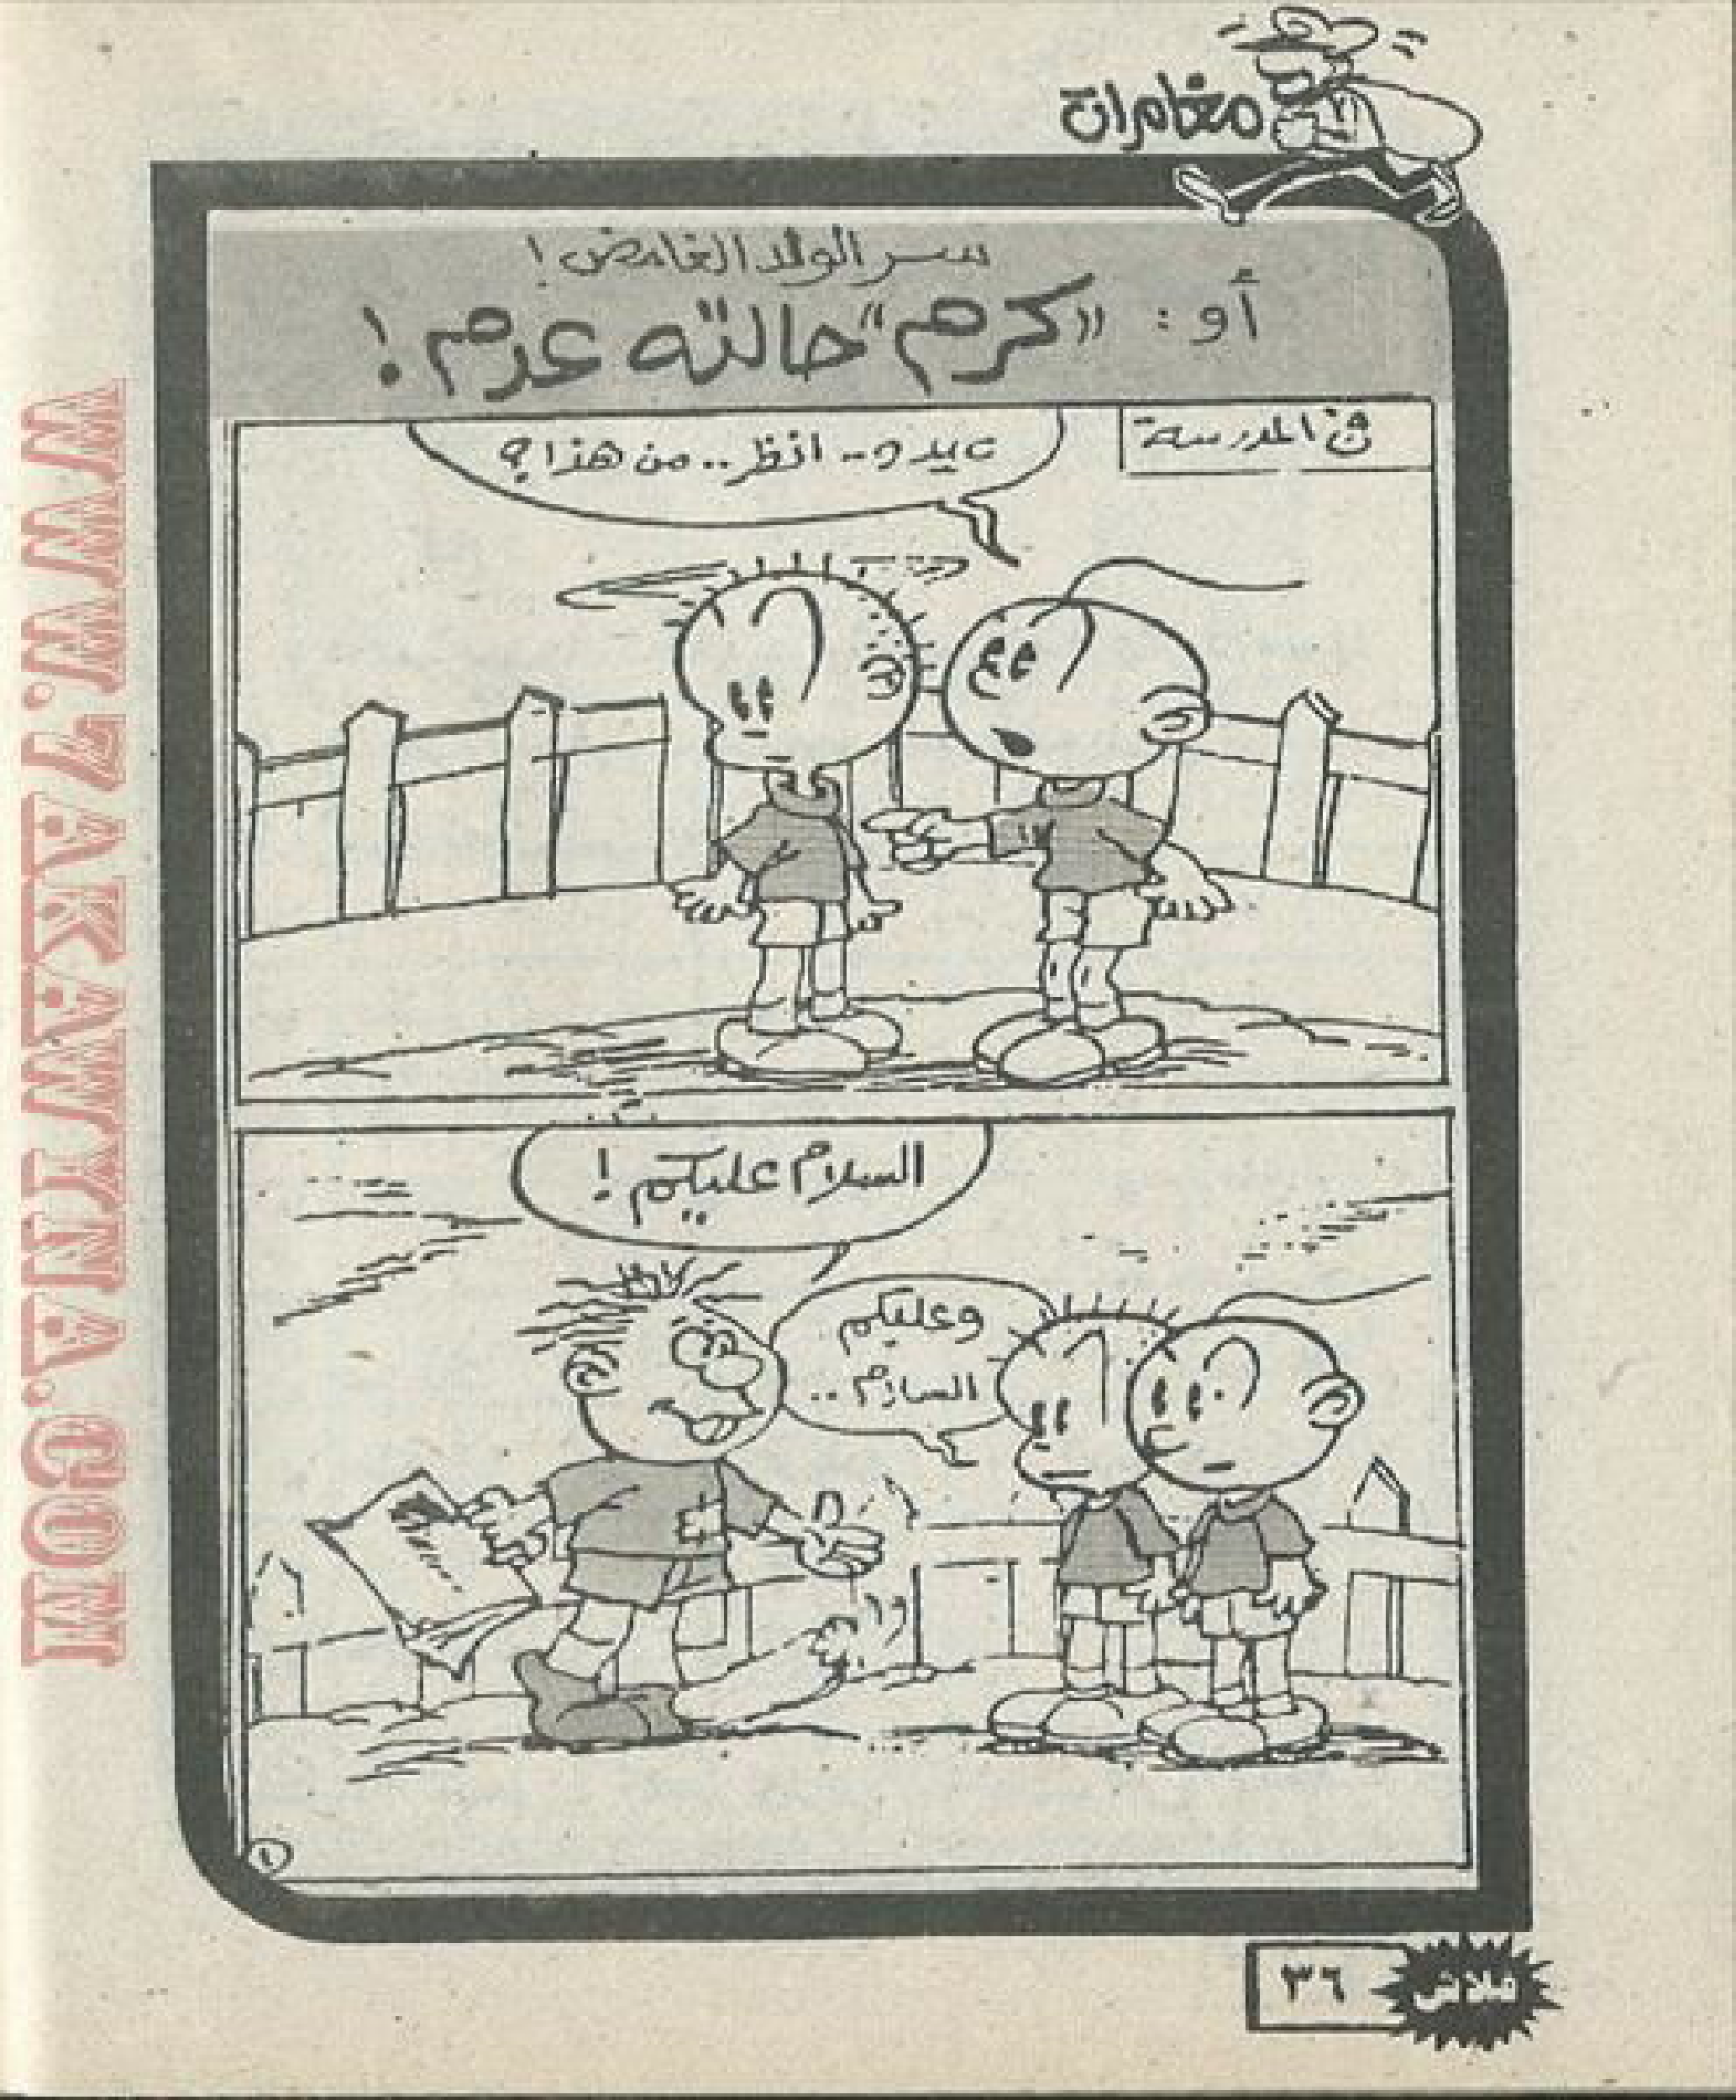 مغامرات
سر الولد الغامض!
أو: «كرم» حالته عدم!
في المدرسة
عبده - انظر.. من هذا؟
السلام عليكم!
وعليكم
السلام..
١
فلاش
٣٦
WWW.ZAKAWINA.COM